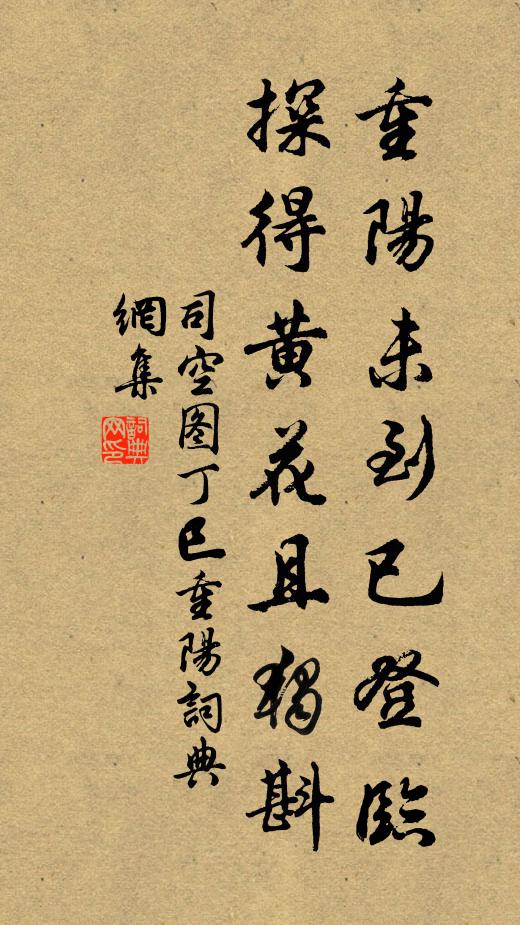 重陽未到已登臨
探得黄花且獨斟
司空图丁巳重陽詞典
網集
詞典
网印